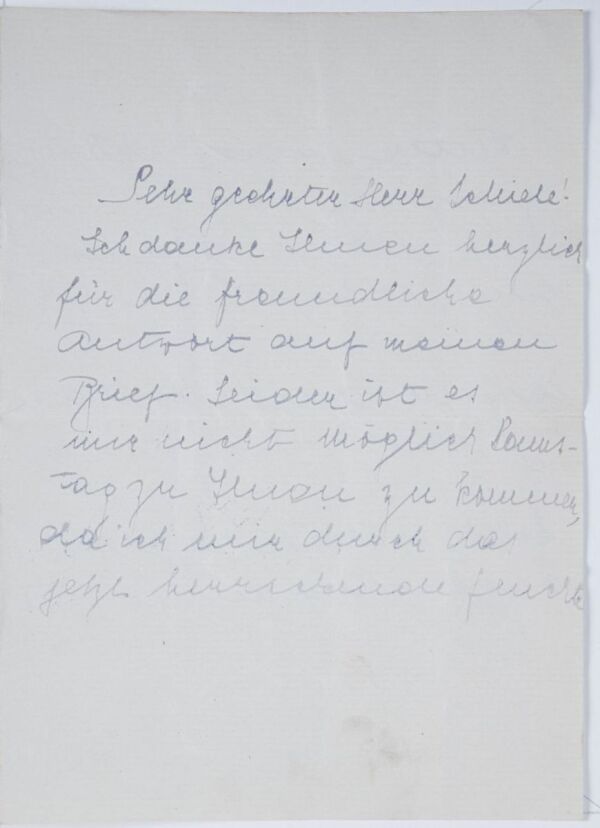 Sehr geehrter Herr Schiele!
Ich danke Ihnen herzlich
für die freundliche
Antwort auf meinen
Brief. Leider ist es
mir nicht möglich Sams-
tag zu Ihnen zu kommen,
da ich mir durch das
jetzt herrschende feuchte